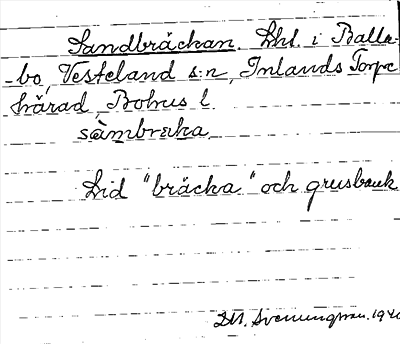 Sandbräckan. Lht. i Balla-
-bo, Vesteland s:n, Inlands Torpe
härad, Bohus l.
sàmbrɛka
Lid "bräcka" och grusbank
D.H. Svenungsson. 1940